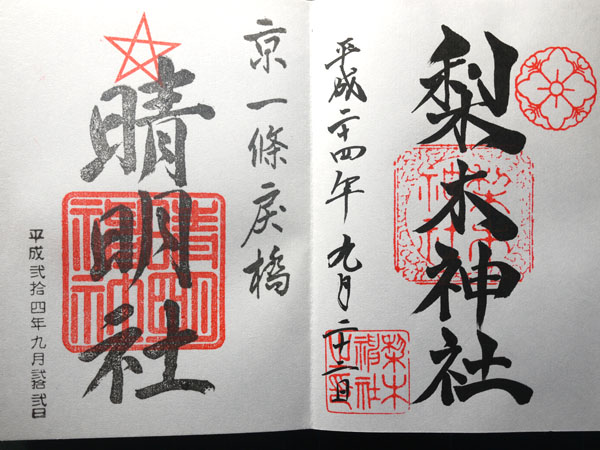 梨木神社
平成二十四年九月二十二日
梨木
神社
京一條戻橋
晴明社
平成弐拾四年九月弐拾弐日